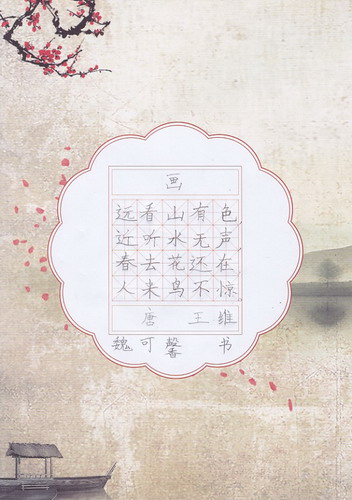 画
远看山有色
近听水无声
春去花还在
人来鸟不惊
唐 王维
魏可馨 书